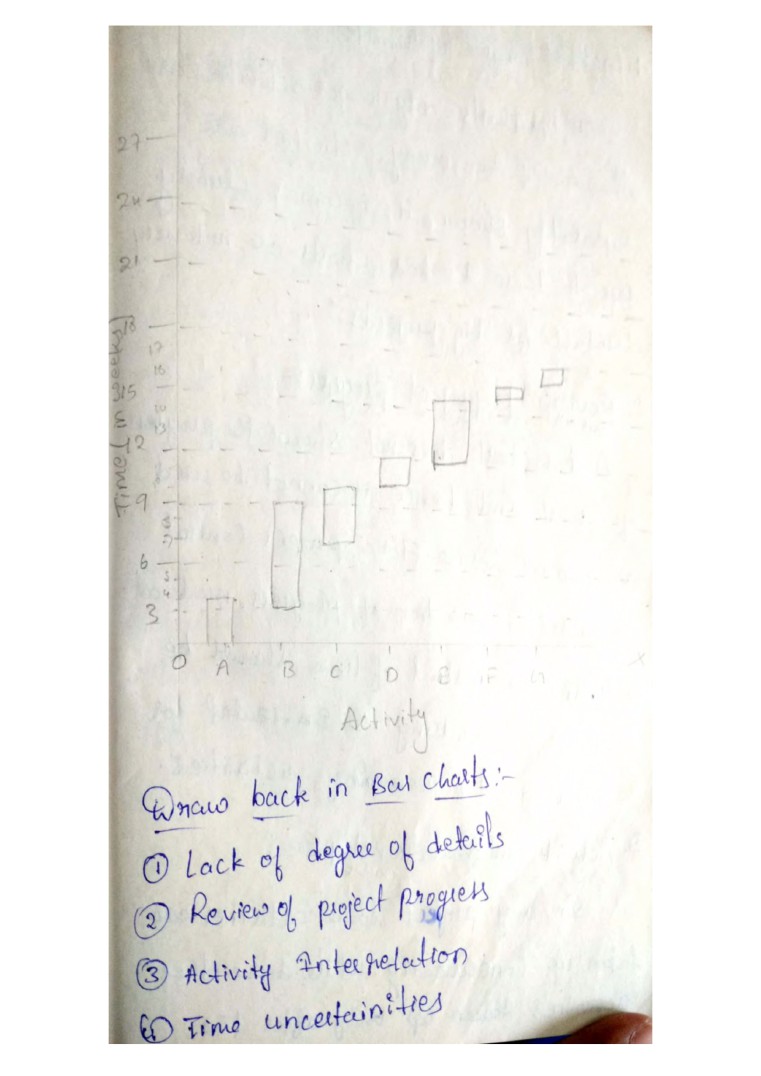 27
24
21
18
17
16
15
13
12
9
8
7
6
5
4
3
Time (in weeks)
O A B C D E F G X
Activity
Draw back in Bar Charts:-
① Lack of degree of details
② Review of project progress
③ Activity Interrelation
④ Time uncertainities